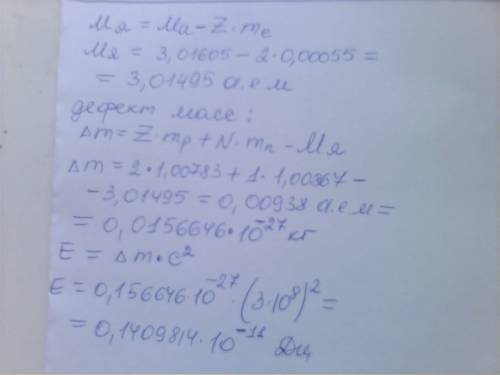 Mя = Ma - Z·me
Mя = 3,01605 - 2·0,00055 =
= 3,01495 а.е м
дефект масс:
Δm = Z·mp + N·mn - Mя
Δm = 2·1,00783 + 1·1,00867 -
-3,01495 = 0,00938 а.е м =
= 0,0156646·10⁻²⁷ кг
E = Δm·c²
E = 0,156646·10⁻²⁷·(3·10⁸)² =
= 0,1409814·10⁻¹¹ Дж